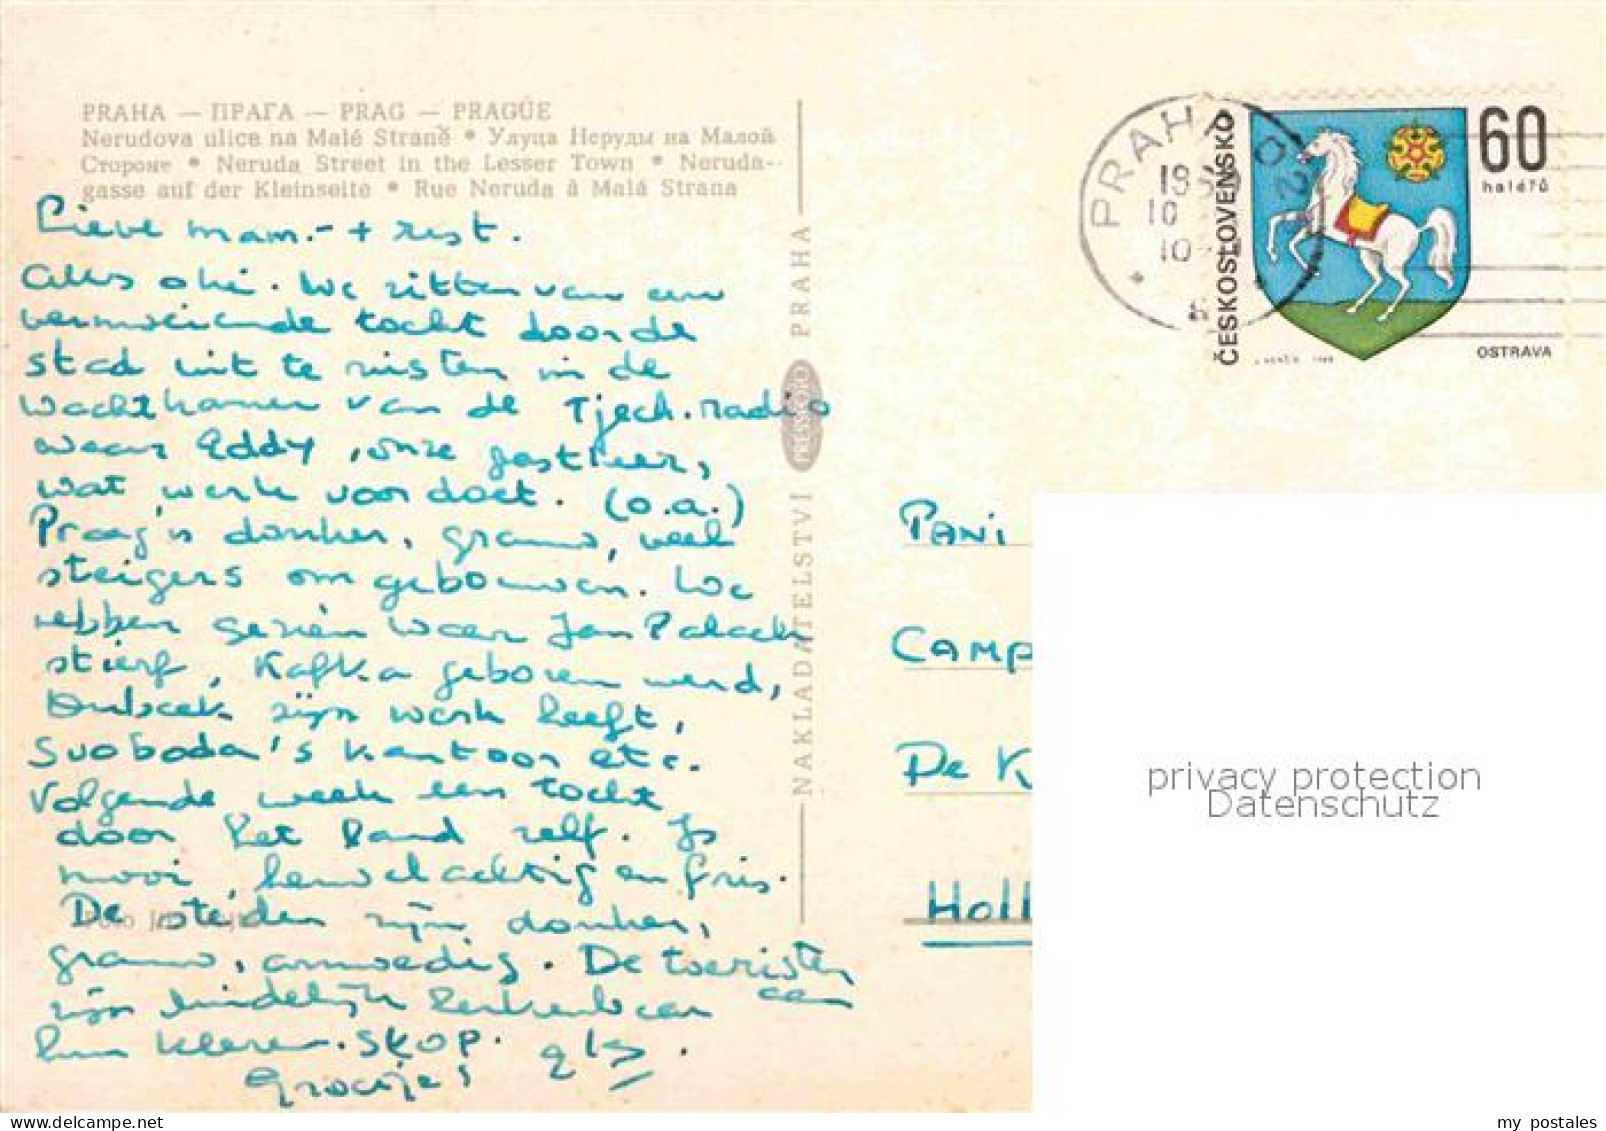 PRAHA — ПРАГА — PRAG — PRAGUE
Nerudova ulice na Malé Straně • Улуца Неруды на Малой
Стороне • Neruda Street in the Lesser Town • Neruda-
gasse auf der Kleinseite • Rue Neruda à Malá Strana
Lieve mam.- + rest.
Alles oké. We zitten van een
vermoeiende tocht door de
stad uit te rusten in de
wachtkamer van de Tjech. radio
waar Eddy, onze gastheer,
wat werk voor doet. (o.a.)
Praag is donker, grauw, veel
steigers om gebouwen. We
hebben gezien waar Jan Palach
stierf, Kafka geboren werd,
Dubcek zijn werk heeft,
Svoboda's kantoor etc.
Volgende week een tocht
door het land zelf. Is
mooi, heuvelachtig en fris.
De steden zijn donker,
grauw, armoedig. De toeristen
zijn duidelijk herkenbaar aan
hun kleren. SKOP.
Groetjes
NAKLADATELSTVÍ PRESSFOTO PRAHA
PRAHA 02
10
10
ČESKOSLOVENSKO
60
haléřů
OSTRAVA
PANI
CAMP
DE K
HOLL
privacy protection
Datenschutz
my postales
www.delcampe.net